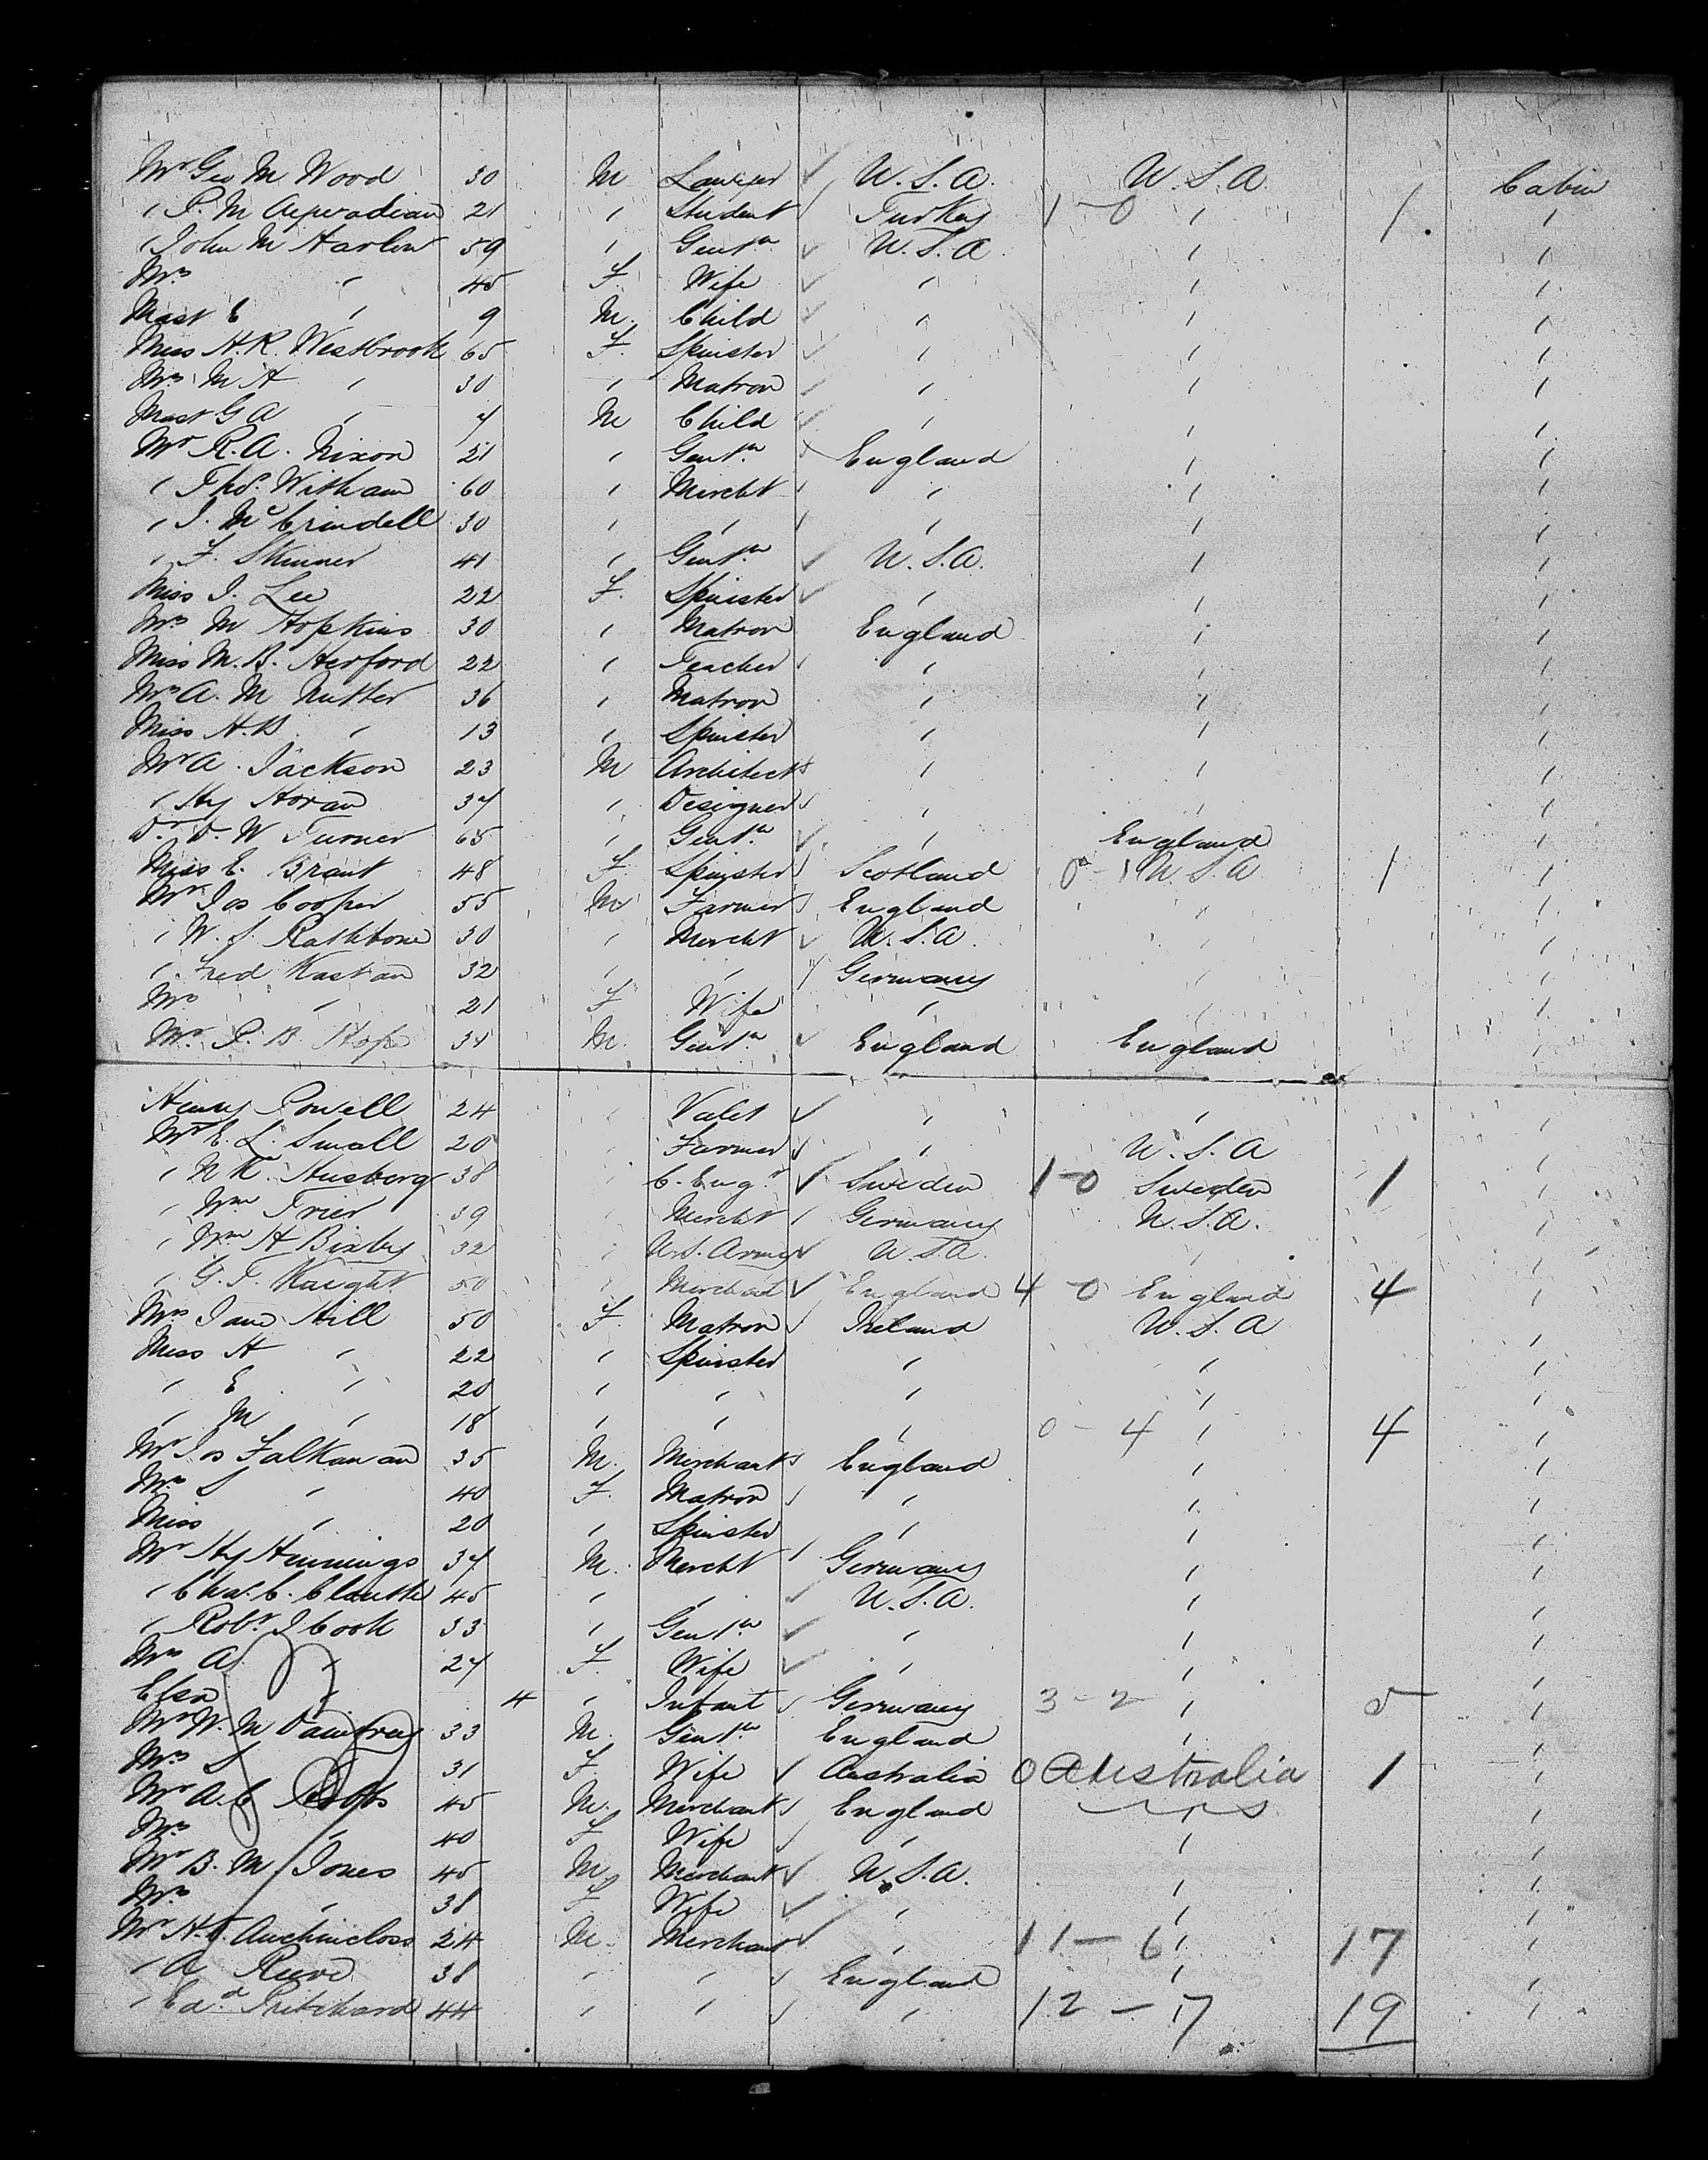 Mr Geo M Wood 30 M Lawyer U.S.A. U.S.A Cabin
" P. M Aeperadian 21 " Student Turkey 1-0 " 1 "
" John M Harlow 59 " Gentn U.S.A. " "
Mrs " 45 F. Wife " " "
Mast E " 9 M. Child " " "
Miss H.R. Westbrook 65 F. Spinster " " "
Mrs M A " 30 " Matron " " "
Mast G A " 7 M Child " " "
Mr R.A. Nixon 21 " Gentn England " "
" Thos. Witham 60 " Mercht " " "
" J. McCrindell 30 " " " " "
" F. Skinner 41 " Gentn U.S.A. " "
Miss J. Lee 22 F. Spinster " " "
Mrs M Hopkins 30 " Matron England " "
Miss M.B. Herford 22 " Teacher " " "
Mrs A. M Nutter 36 " Matron " " "
Miss H.B " 13 " Spinster " " "
Mr A. Jackson 23 M Architect " " "
" Hy Horan 37 " Designer " " "
Dr. D. W Turner 65 " Gentn " England "
Miss E. Brant 48 F. Spinster Scotland 0-1 U.S.A 1 "
Mr Jos Cooper 55 M Farmer England " "
" W. S. Rathbone 30 " Mercht U.S.A. " "
" Fred Kastan 32 " " Germany " "
Mrs " 21 F Wife " " "
Mr. P. B Hope 35 M. Gentn England England "
Henry Powell 24 " Valet " " "
Mr E. L. Small 20 " Farmer " U.S.A "
" N K. Husberg 38 " C. Engr Sweden 1-0 Sweden 1 "
" Wm Frier 39 " Mercht Germany U.S.A. "
" Wm H Bixby 32 " U.S. Army U.S.A. " "
" G. T. Knight 50 " Merchant England 4 0 England 4 "
Mrs Jane Hill 50 F. Matron Ireland U.S.A "
Miss H " 22 " Spinster " " "
" E " 20 " " " " "
" M " 18 " " " 0-4 " 4 "
Mr Jos Falkanan 35 M. Merchant England " "
Mrs S " 40 F. Matron " " "
Miss " 20 " Spinster " " "
Mr Hy Hennings 37 M. Mercht Germany " "
" Chas. C. 45 " " U.S.A. " "
" Robt. J Cook 33 " Gentn " " "
Mrs A " 27 F. Wife " " "
Elsa " 4 " Infant Germany 3-2 " 5 "
Mr W. M 33 M. Gentn England " "
Mrs S " 31 F. Wife Australia 0 Australia 1 "
Mr A.C 45 M. Merchant England "
Mrs " 40 F Wife " " "
Mr B. M Jones 45 M Merchant U.S.A. " "
Mrs " 38 F Wife " " "
Mr H. Auchincloss 24 M. Merchant " 11-6 " 17 "
" A Reeve 38 " " England " "
" Edd Pritchard 44 " " " 12-7 19 "